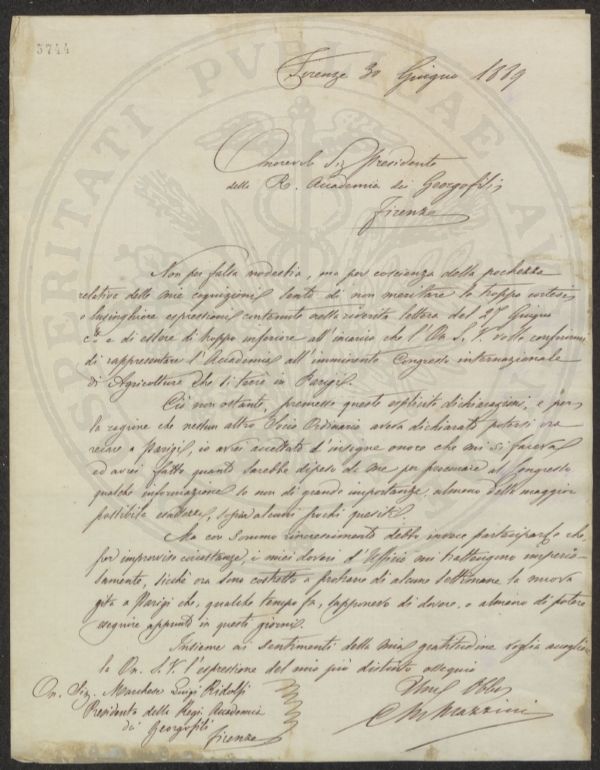 3744
Firenze 30 Giugno 1889
Onorevole Sig. Presidente
della R. Accademia dei Georgofili
Firenze
Non per falsa modestia, ma per coscienza della pochezza
relativa delle mie cognizioni sento di non meritare le troppo cortesi
e lusinghiere espressioni contenute nella riverita lettera del 27 Giugno
e di essere di troppo inferiore all'incarico che l'On. S. V. volle conferirmi
di rappresentare l'Accademia all'imminente Congresso internazionale
di Agricoltura che si terrà in Parigi.
Ciò non ostante, premesse queste esplicite dichiarazioni, e per
la ragione che nessun altro Socio Ordinario aveva dichiarato potersi ora
recare a Parigi, io avrei accettato l'insigne onore che mi si faceva
ed avrei fatto quanto sarebbe dipeso da me per procurare al Congresso
qualche informazione se non di grande importanza, almeno della maggior
possibile esattezza, sopra alcuni pochi quesiti.
Ma con sommo rincrescimento debbo invece parteciparle che,
per improvvise circostanze, i miei doveri d'Ufficio mi trattengono imperio-
samente, sicchè ora sono costretto a protrarre di alcune settimane la nuova
gita a Parigi che, qualche tempo fa, supponevo di dovere, o almeno di potere
eseguire appunto in questi giorni.
Insieme ai sentimenti della mia gratitudine voglia accogliere
la On. S. V. l'espressione del mio più distinto ossequio
On. Sig. Marchese Luigi Ridolfi
Presidente della Regi. Accademia
dei Georgofili
Firenze
C M Mazzini
PROSPERITATI PUBLICAE AU